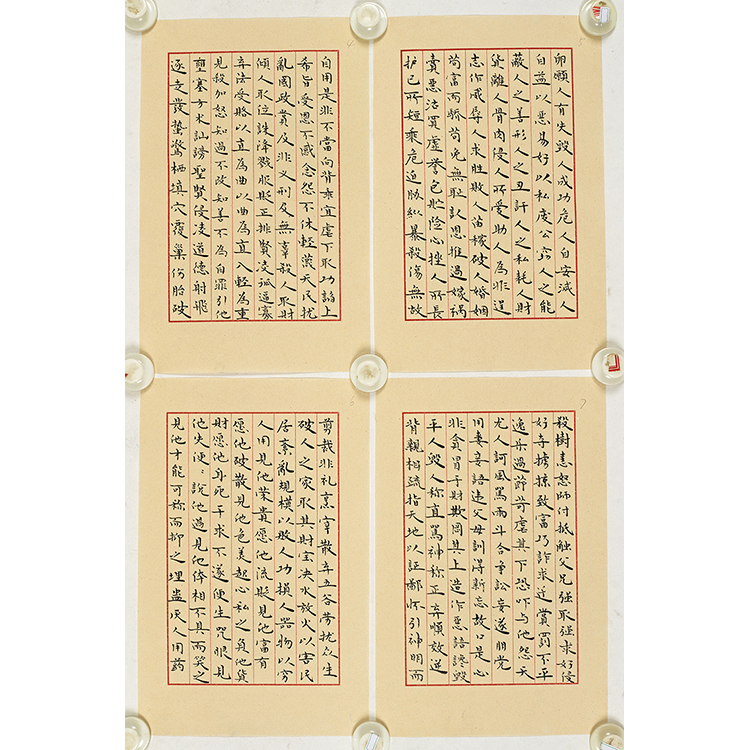 自用是非不當向背乖宜虐下取功諂上
希旨受恩不感念怨不休輕蔑天民扰
亂國政賞及非义刑及無辜殺人取財
傾人取位誅降戮服貶正排賢凌孤逼寡
弃法受賂以直為曲以曲為直入輕為重
見殺加怒知過不改知善不為自罪引他
壅塞方术訕謗聖賢侵凌道德射飛
逐走發蟄驚栖填穴覆巢伤胎破
卵願人有失毀人成功危人自安減人
自益以惡易好以私废公窃人之能
蔽人之善形人之丑訐人之私耗人財
貨離人骨肉侵人所愛助人為非逞
志作威辱人求胜敗人苗稼破人婚姻
苟富而驕苟免無恥认恩推過嫁禍
賣惡沽買虛誉包贮险心挫人所長
护己所短乘危迫胁纵暴殺傷無故
剪裁非礼烹宰散弃五谷劳扰众生
破人之家取其財宝决水放火以害民
居紊亂規模以敗人功損人器物以穷
人用見他荣貴愿他流貶見他富有
愿他破散見他色美起心私之負他貨
財愿他身死干求不遂便生咒恨見
他失便：說他過見他体相不具而笑之
見他才能可称而抑之埋蛊厌人用药
殺樹恚怒師付抵触父兄强取强求好侵
好夺掳掠致富巧詐求迁賞罰不平
逸乐過節苛虐其下恐吓与他怨天
尤人訶風罵雨斗合争訟妄逐朋党
用妻妾語违父母訓得新忘故口是心
非貪冒于財欺罔其上造作惡語讒毀
平人毀人称直罵神称正弃順效逆
背親相疏指天地以証鄙怀引神明而